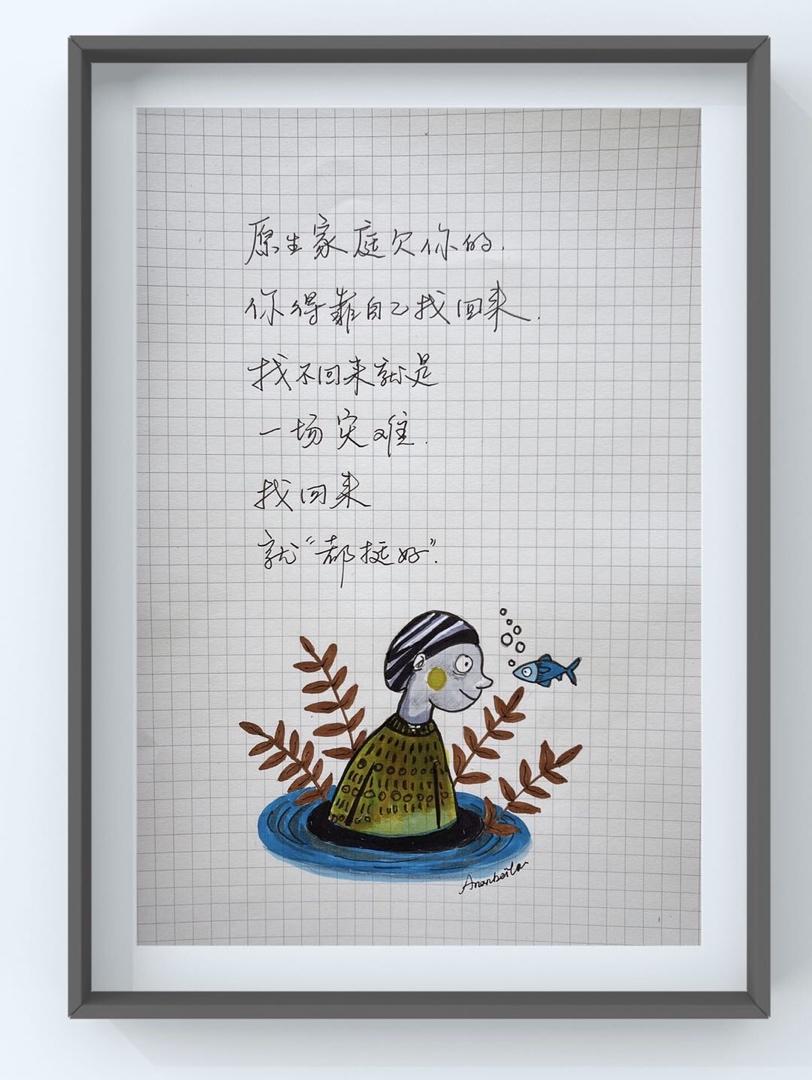 原生家庭欠你的.
你得靠自己找回来.
找不回来就是
一场灾难.
找回来
就"都挺好".